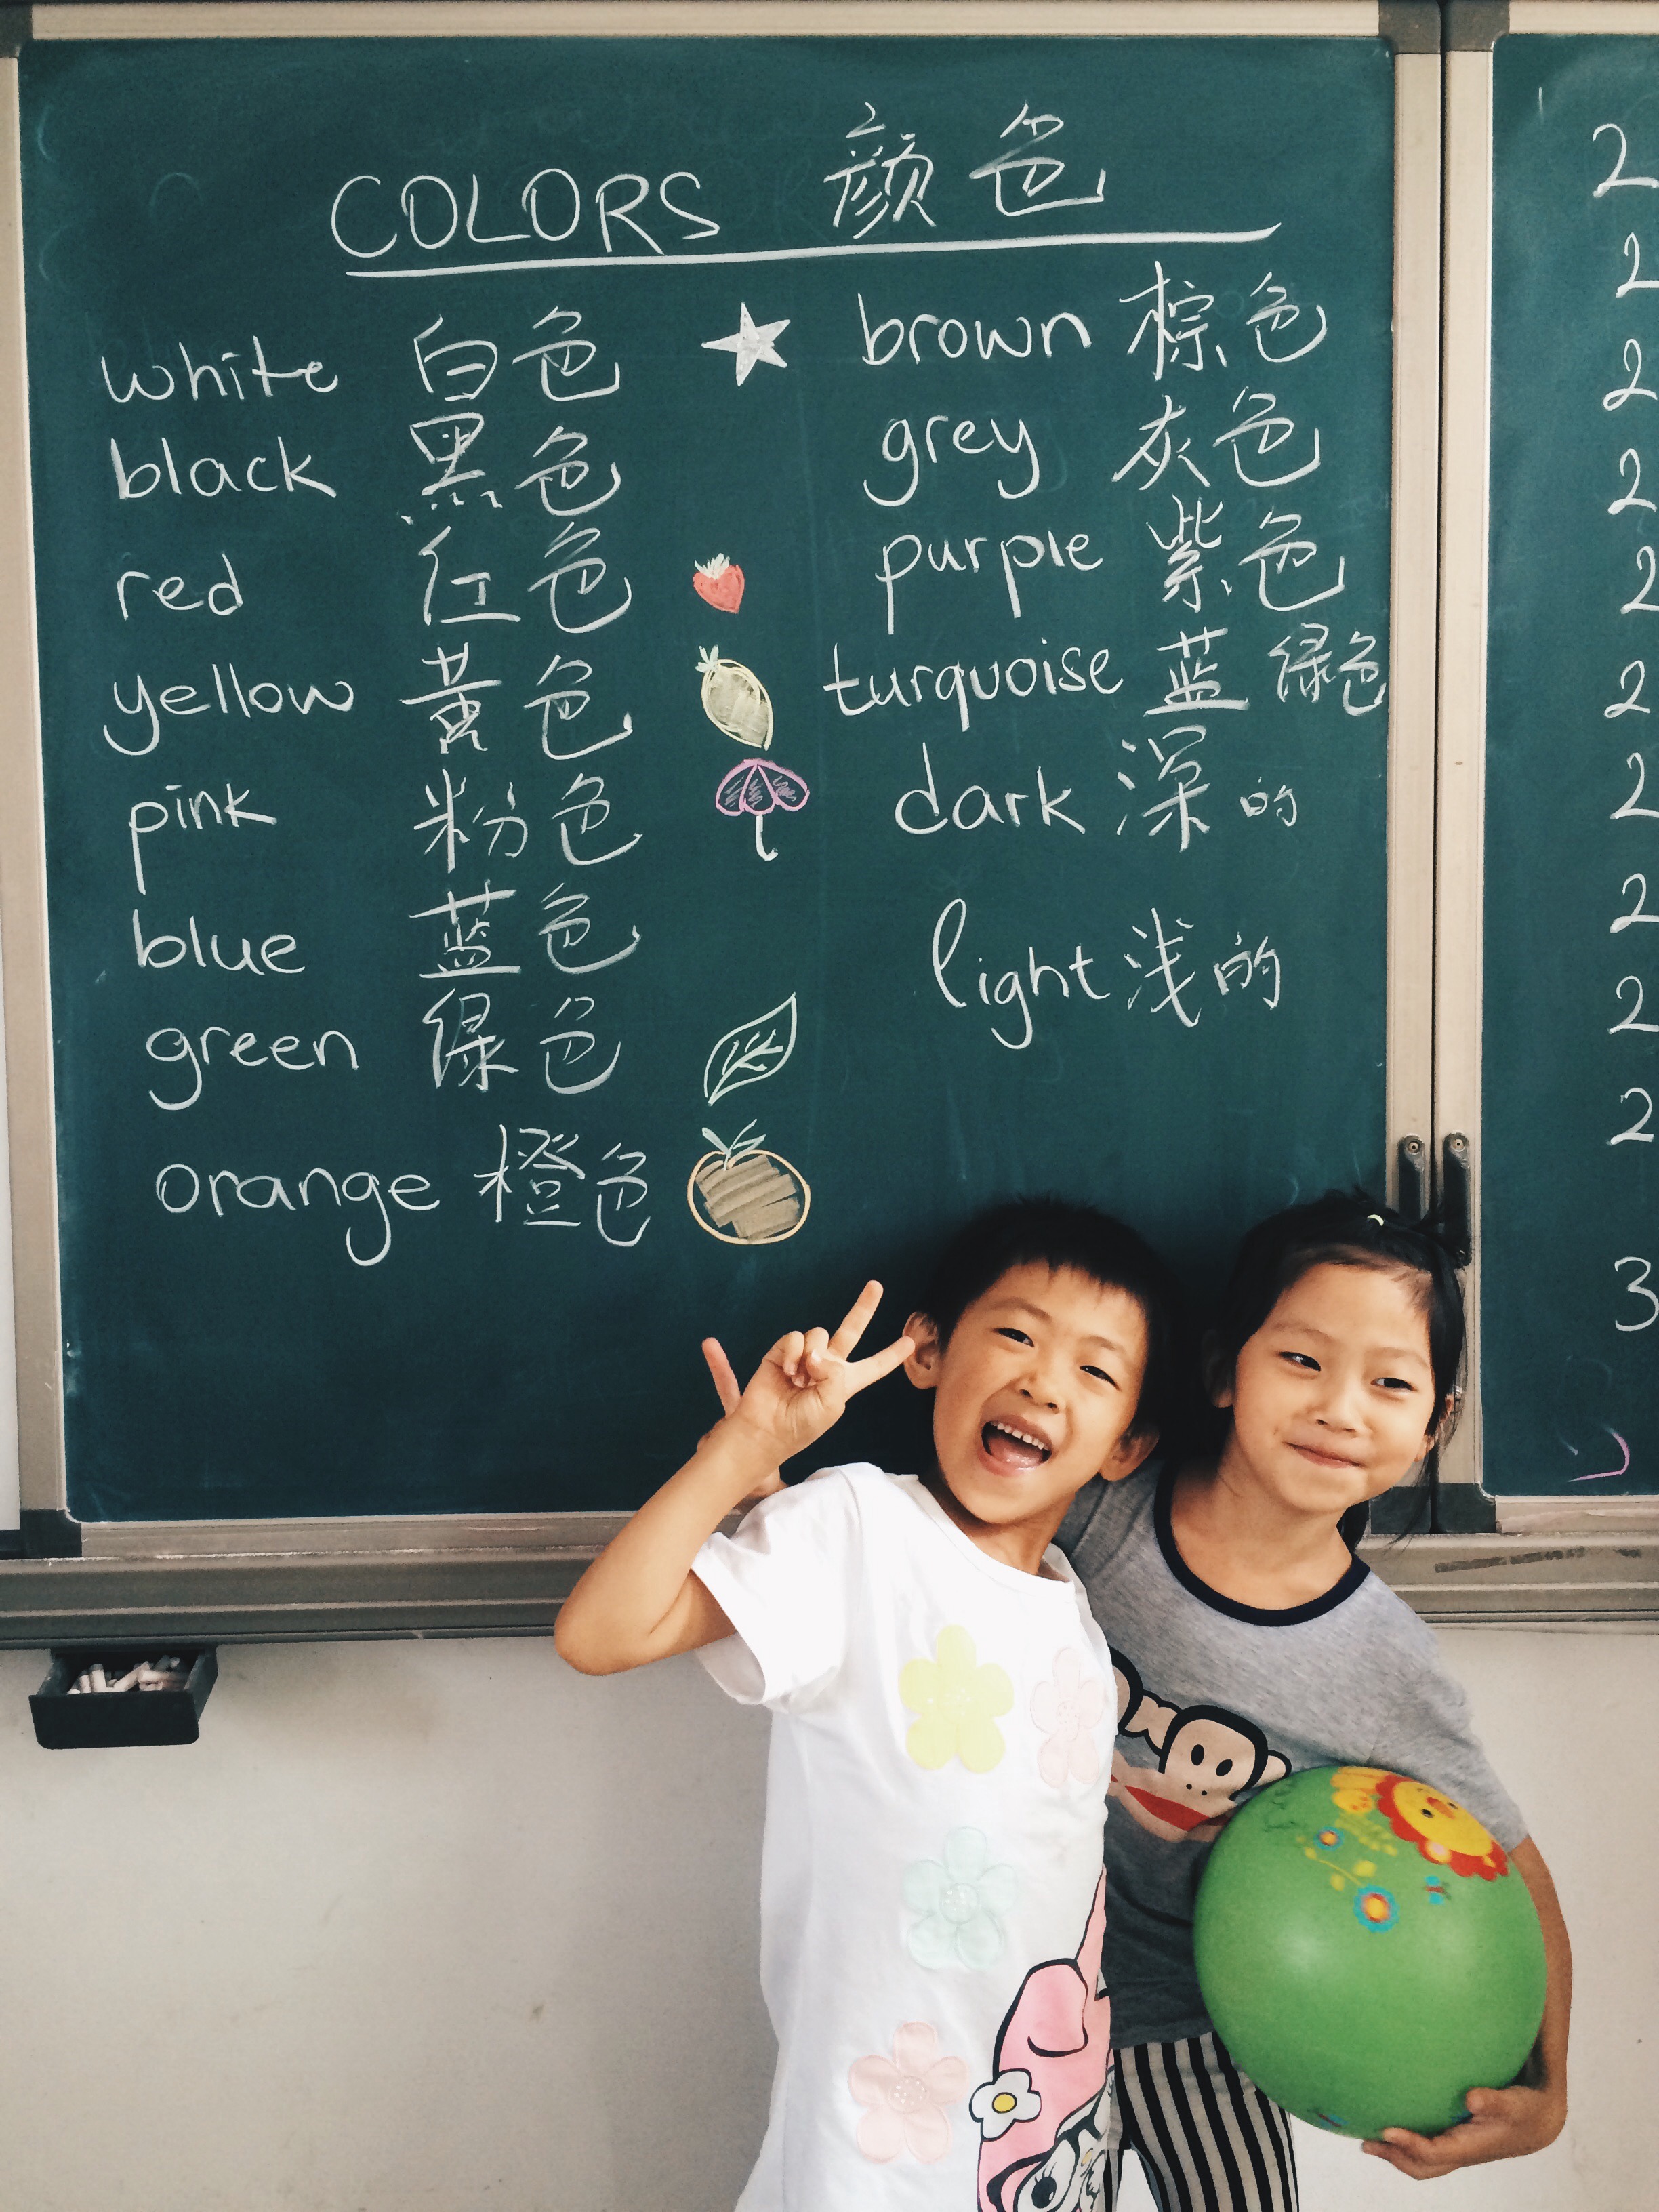 COLORS 颜色
white 白色
black 黑色
red 红色
yellow 黄色
pink 粉色
blue 蓝色
green 绿色
orange 橙色
brown 棕色
grey 灰色
purple 紫色
turquoise 蓝绿色
dark 深的
light 浅的
2
2
2
2
2
2
2
2
2
2
3